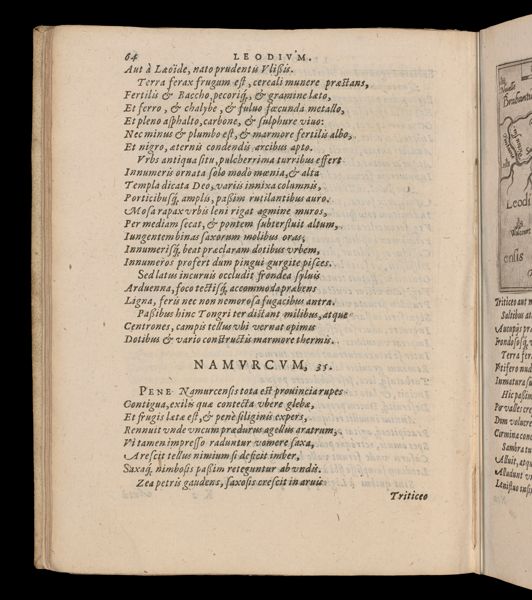 64 LEODIVM.
Aut à Laoïde, nato prudentis Vlißis.
Terra ferax frugum est, cereali munere præstans,
Fertilis & Baccho, pecoriq́, & gramine læto,
Et ferro, & chalybe, & fuluo fœcunda metallo,
Et pleno asphalto, carbone, & sulphure viuo:
Nec minus & plumbo est, & marmore fertilis albo,
Et nigro, æternis condendis arcibus apto.
Vrbs antiqua situ, pulcherrima turribus effert
Innumeris ornata solo modo mœnia, & alta
Templa dicata Deo, variis innixa columnis,
Porticibusq́, amplis, paßim rutilantibus auro.
Mosa rapax vrbis leni rigat agmine muros,
Per mediam secat, & pontem subterfluit altum,
Iungentem binas saxorum molibus oras,
Innumerisq́, beat præclaram dotibus vrbem,
Innumeros profert dum pingui gurgite pisces.
Sed latus incuruis occludit frondea syluis
Arduenna, foco tectisq́, accommoda præbens
Ligna, feris nec non nemorosa fugacibus antra.
Paßibus hinc Tongri ter distant milibus, atque
Centrones, campis tellus vbi vernat opimis
Dotibus & vario constructis marmore thermis.
NAMVRCVM, 35.
PENE Namurcensis tota est prouincia rupes
Contigua, exilis quæ contecta vbere glebæ,
Et frugis læta est, & penè siliginis expers,
Rennuit vnde vncum prædurus agellus aratrum,
Vt tamen impresso raduntur vomere saxa,
Arescit tellus nimium si deficit imber,
Saxaq́, nimbosis paßim reteguntur ab vndis.
Zea petris gaudens, saxosis crescit in aruis
Triticeo
Brabantiæ
Leodi
ensis
Triticeo aut m
Saltibus at
Frondososq́, v
Terra fer
Hic paßim
Dum volucre
Carmina con
Sambra tu
Alluit, atq́
Alludunt v